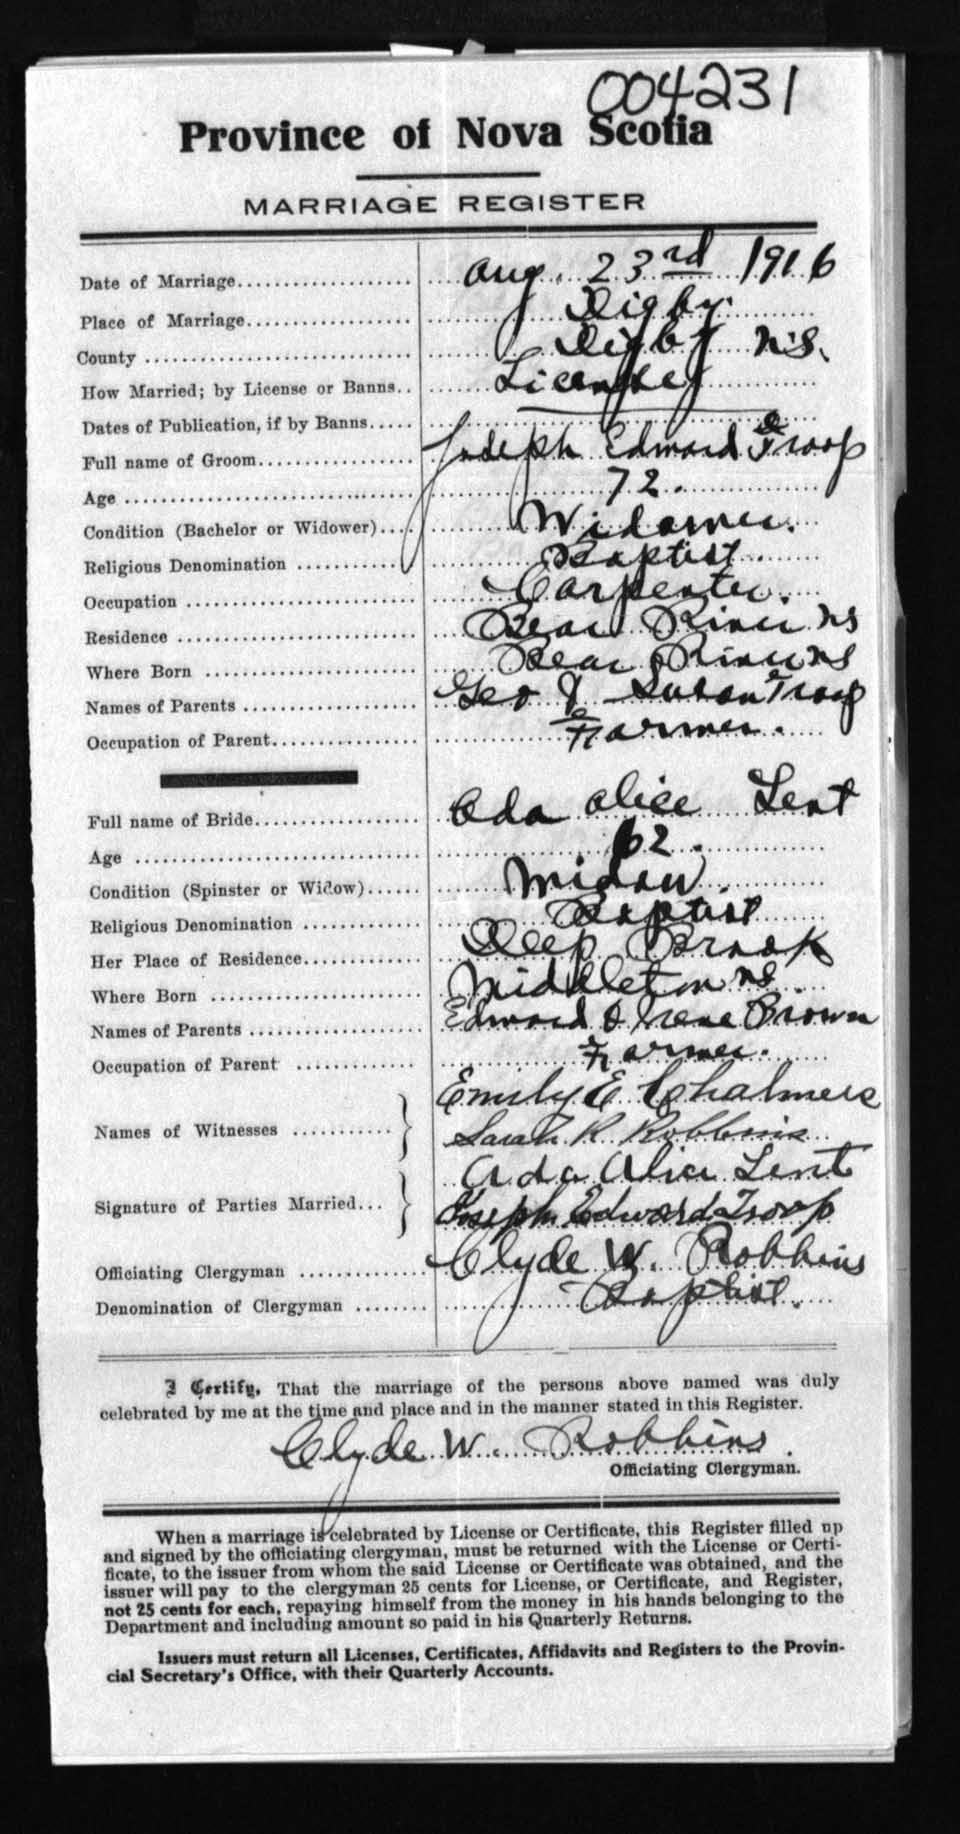 004231
Province of Nova Scotia
MARRIAGE REGISTER
Date of Marriage Aug. 23rd 1916
Place of Marriage Digby
County Digby N.S.
How Married; by License or Banns License
Dates of Publication, if by Banns
Full name of Groom Joseph Edward Troop
Age 72.
Condition (Bachelor or Widower) Widower.
Religious Denomination Baptist.
Occupation Carpenter.
Residence Bear River NS
Where Born Bear River NS
Names of Parents Geo & Susan Troop
Occupation of Parent Farmer.
Full name of Bride Ada Alice Lent
Age 62.
Condition (Spinster or Widow) Widow.
Religious Denomination Baptist
Her Place of Residence Deep Brook
Where Born Middleton NS.
Names of Parents Edward & Irene Brown
Occupation of Parent Farmer.
Names of Witnesses Emily E. Chalmers
Sarah R. Robbins
Signature of Parties Married Ada Alice Lent
Joseph Edward Troop
Officiating Clergyman Clyde W. Robbins
Denomination of Clergyman Baptist.
I Certify, That the marriage of the persons above named was duly
celebrated by me at the time and place and in the manner stated in this Register.
Clyde W. Robbins.
Officiating Clergyman.
When a marriage is celebrated by License or Certificate, this Register filled up
and signed by the officiating clergyman, must be returned with the License or Certi-
ficate, to the issuer from whom the said License or Certificate was obtained, and the
issuer will pay to the clergyman 25 cents for License, or Certificate, and Register,
not 25 cents for each, repaying himself from the money in his hands belonging to the
Department and including amount so paid in his Quarterly Returns.
Issuers must return all Licenses, Certificates, Affidavits and Registers to the Provin-
cial Secretary's Office, with their Quarterly Accounts.